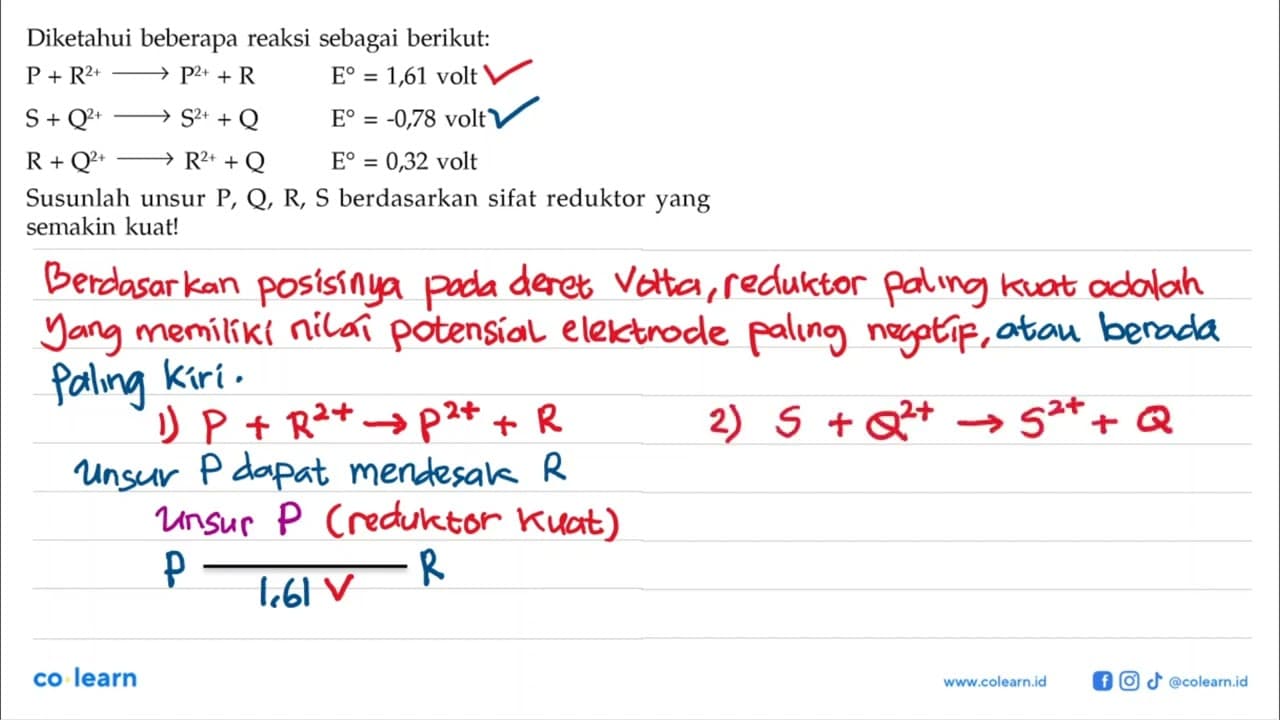 Diketahui beberapa reaksi sebagai berikut:
P + R²⁺ ⟶ P²⁺ + R E° = 1,61 volt
S + Q²⁺ ⟶ S²⁺ + Q E° = -0,78 volt
R + Q²⁺ ⟶ R²⁺ + Q E° = 0,32 volt
Susunlah unsur P, Q, R, S berdasarkan sifat reduktor yang
semakin kuat!
Berdasarkan posisinya pada deret Volta, reduktor paling kuat adalah
yang memiliki nilai potensial elektrode paling negatif, atau berada
paling kiri.
1) P + R²⁺ → P²⁺ + R
2) S + Q²⁺ → S²⁺ + Q
Unsur P dapat mendesak R
Unsur P (reduktor kuat)
P R
1,61 V
co learn
www.colearn.id
@colearn.id